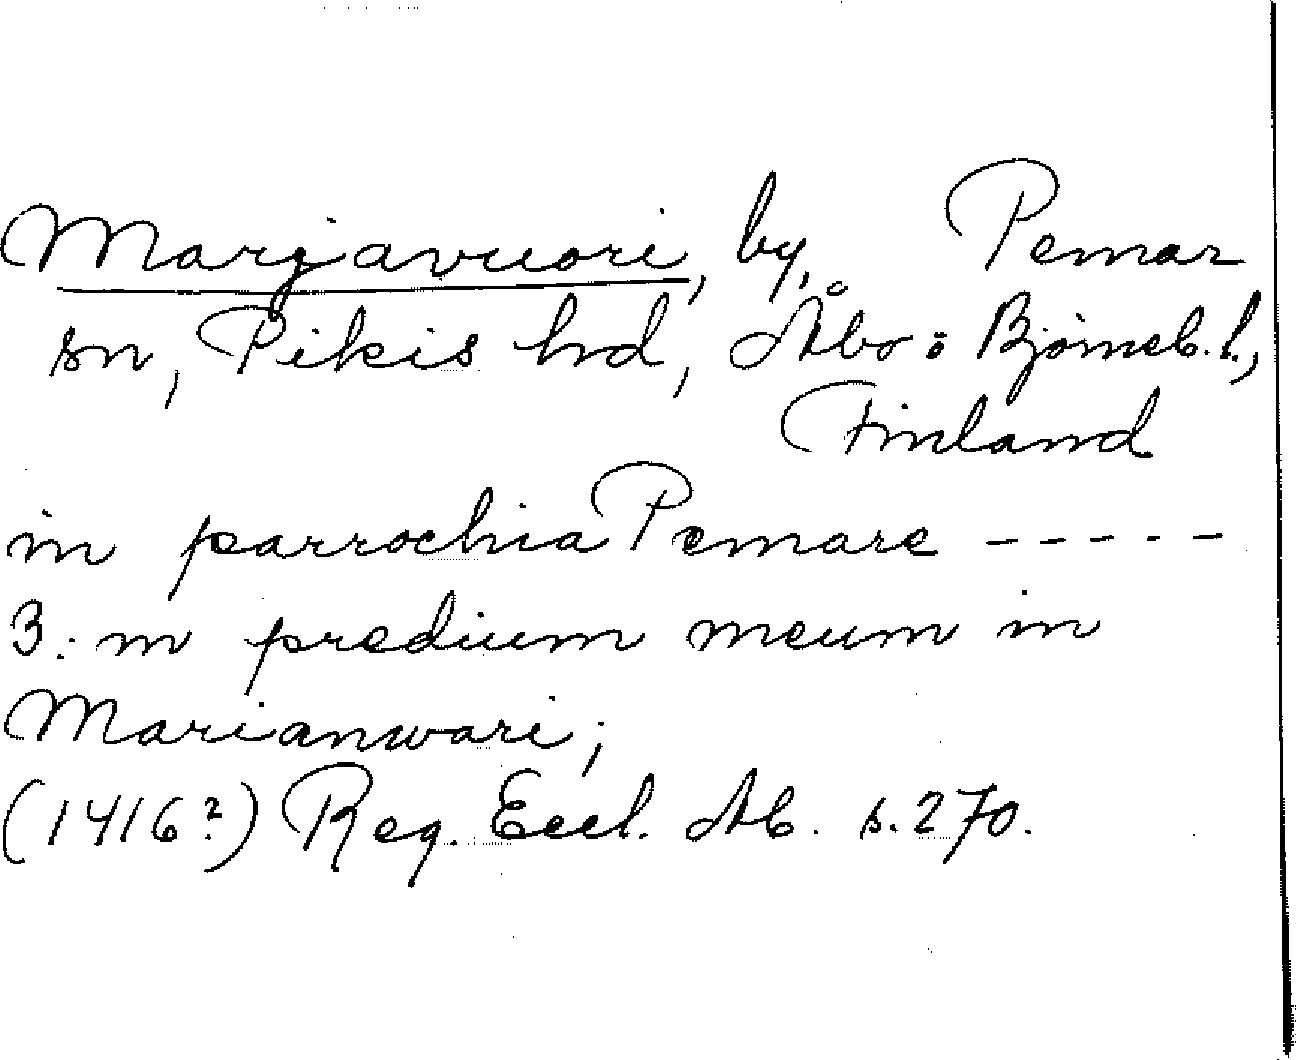 Marjavuori, by, Pemar
sn, Pikis hd, Åbo o Björneb. l.,
Finland
in parrochia Pemare - - - - -
3: m predium meum in
Marianwari;
(1416?) Reg. Eccl. Ab. s. 270.